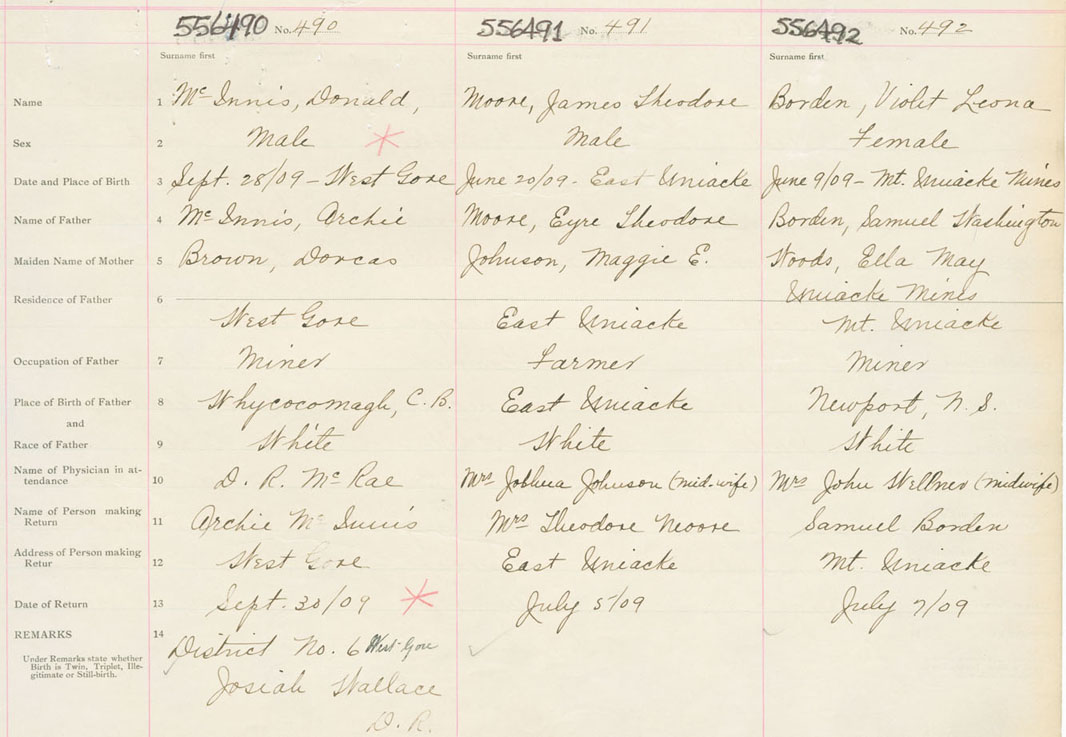 556490 No. 490 556491 No. 491 556492 No. 492
Surname first Surname first Surname first
Name 1 Mc Innis, Donald, Moore, James Theodore Borden, Violet Leona
Sex 2 Male Male Female
Date and Place of Birth 3 Sept. 28/09 - West Gore June 20/09 - East Uniacke June 9/09 - Mt. Uniacke Mines
Name of Father 4 Mc Innis, Archie Moore, Eyre Theodore Borden, Samuel Washington
Maiden Name of Mother 5 Brown, Dorcas Johnson, Maggie E. Woods, Ella May
Residence of Father 6 Uniacke Mines
West Gore East Uniacke Mt. Uniacke
Occupation of Father 7 Miner Farmer Miner
Place of Birth of Father 8 Whycocomagh, C. B. East Uniacke Newport, N. S.
and
Race of Father 9 White White White
Name of Physician in at-
tendance 10 D. R. Mc Rae Mrs Johnson (mid-wife) Mrs John Wellner (midwife)
Name of Person making
Return 11 Archie Mc Innis Mrs Theodore Moore Samuel Borden
Address of Person making
Retur 12 West Gore East Uniacke Mt. Uniacke
Date of Return 13 Sept. 30/09 July 5/09 July 7/09
REMARKS 14 District No. 6 West Gore
Under Remarks state whether
Birth is Twin, Triplet, Ille-
gitimate or Still-birth.
Josiah Wallace
D. R.